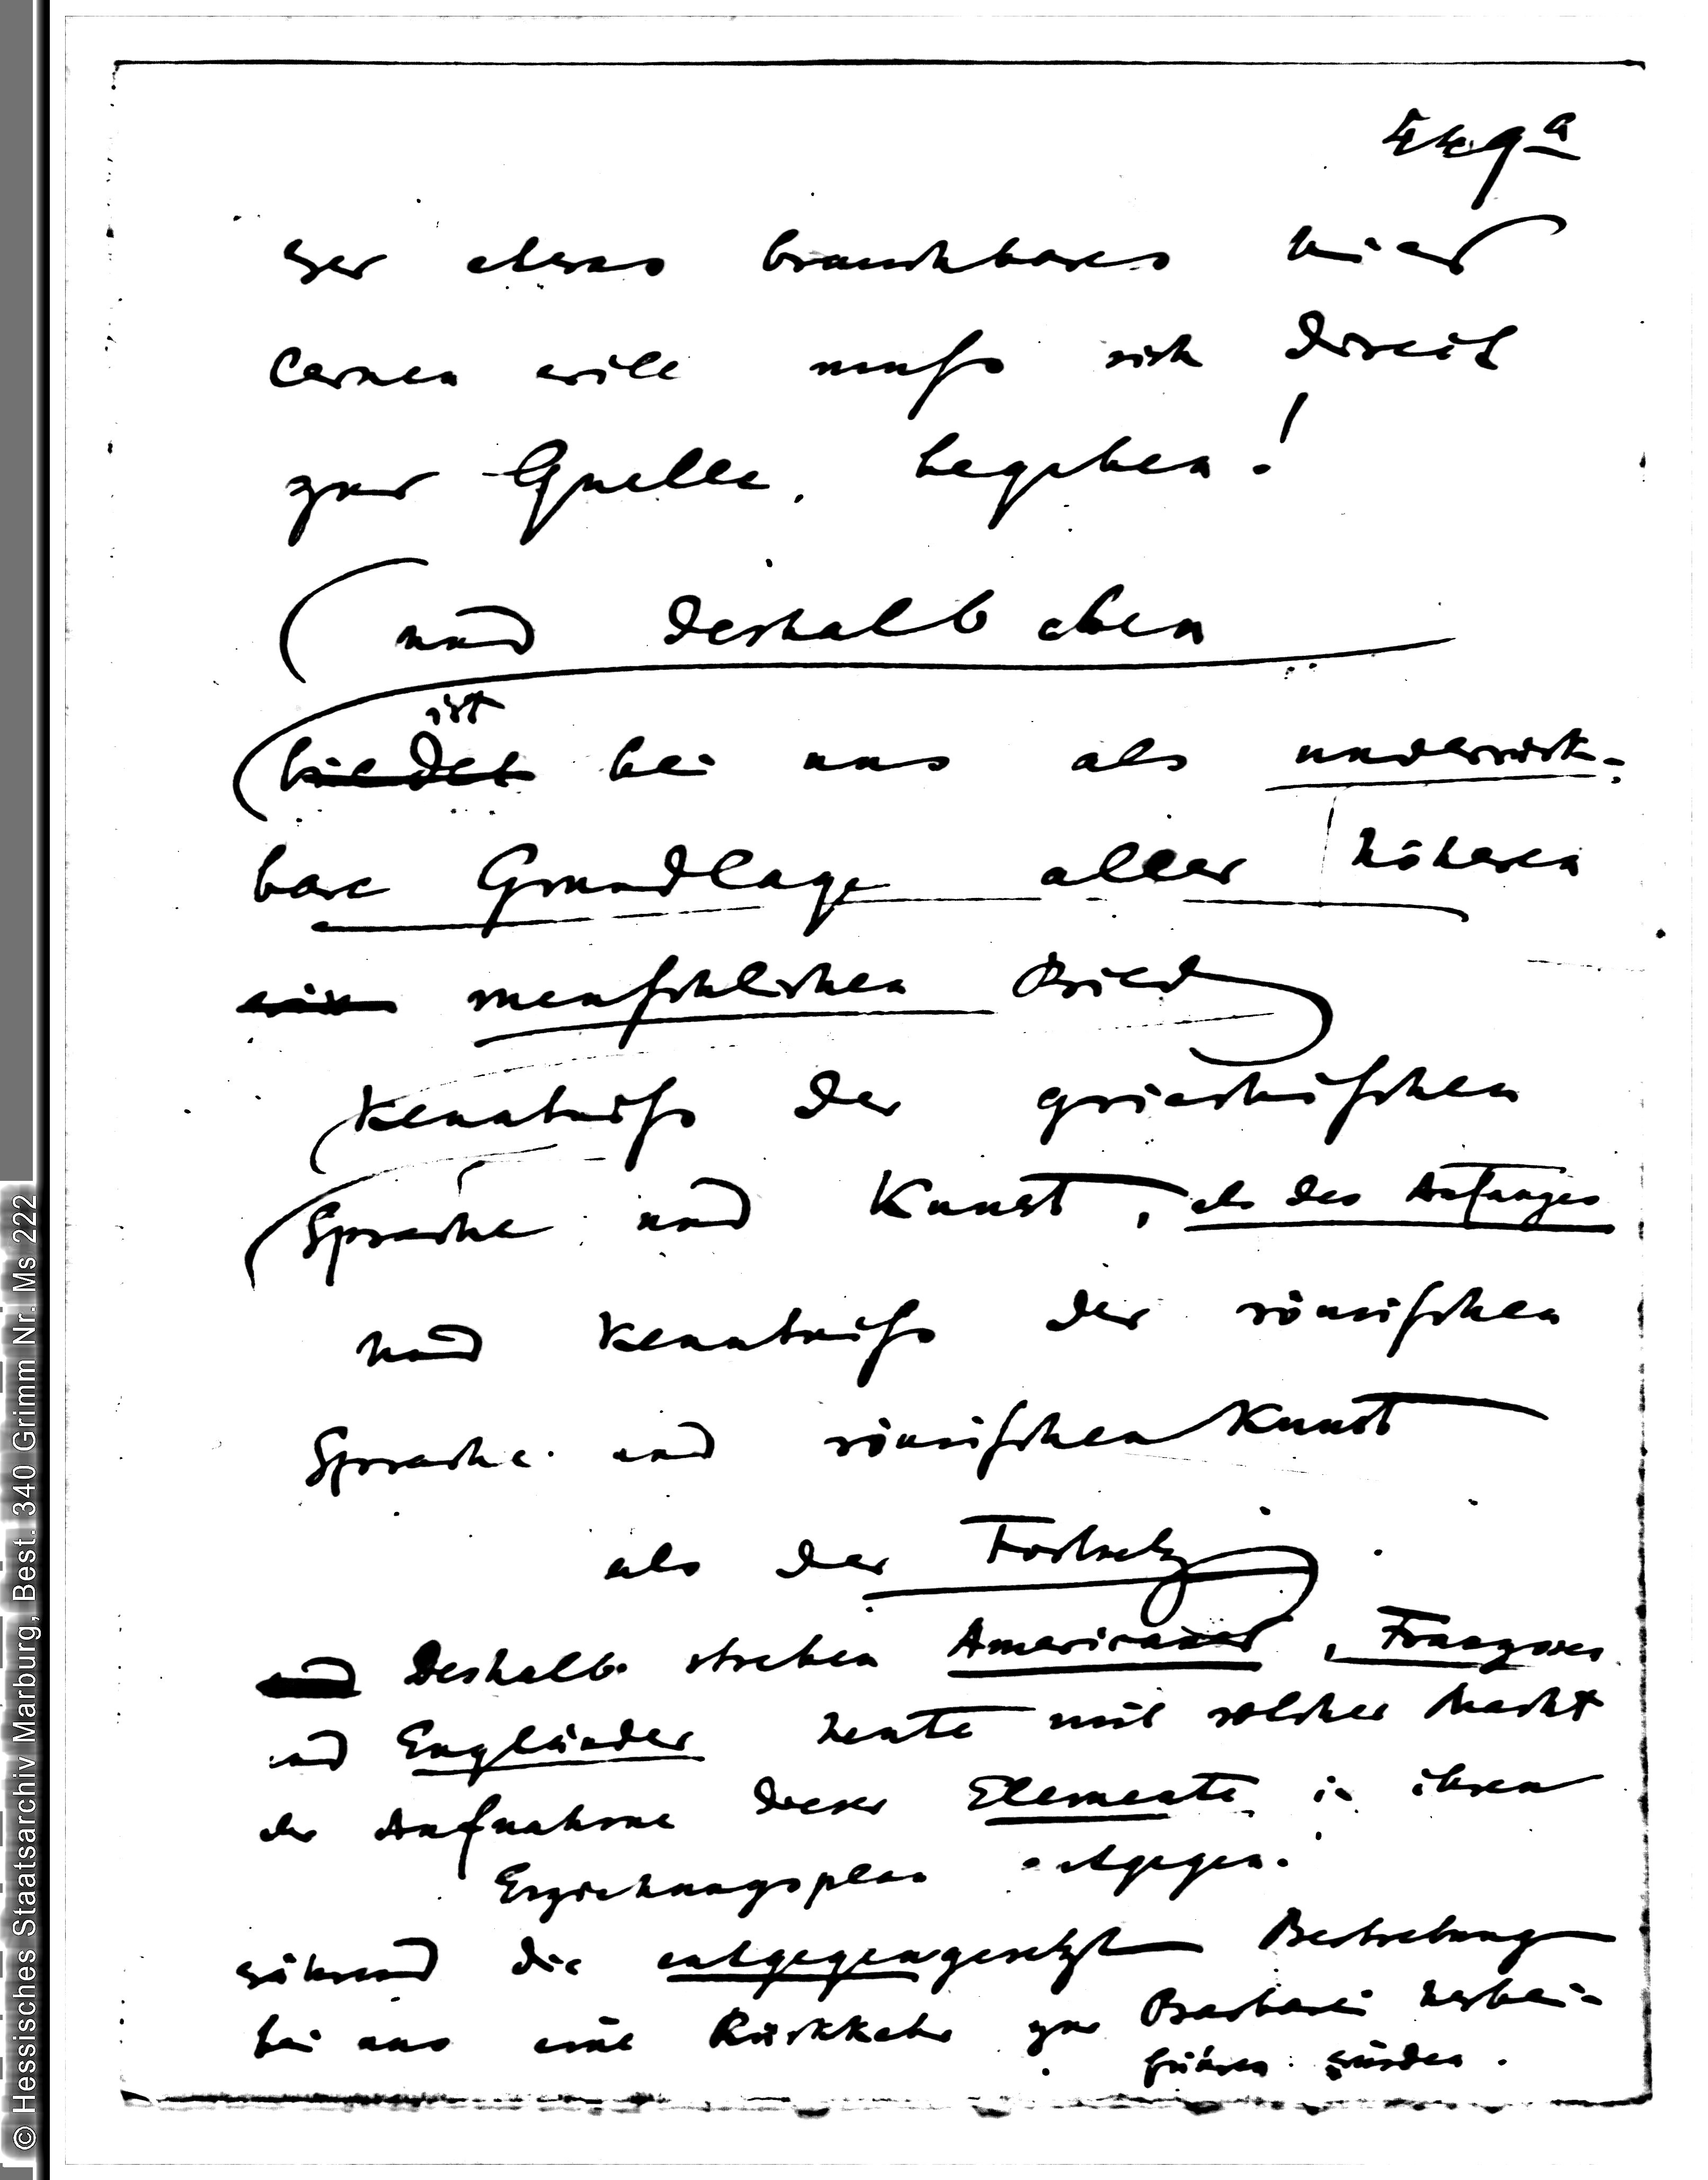 449a
wer etwas brauchbares hier
lernen will muſs sich direct
zur Quelle begeben!
(und deshalb eben
ist
(bildet bei uns als
bare Grundlage aller höheren
ein menſchlichen Bild
Kenntniſs der griechiſchen
Sprache und Kunst, als des Anfanges
und Kenntniſs der römiſchen
Sprache und römiſchen Kunst
als der Fortsetz
und Deshalb streben Americaner, Franzosen
und Engländer heute mit solcher Macht
der Aufnahme dieser Elemente in ihren
Erziehungsplan entgegen.
während die entgegengesetzt Bestrebung
bei uns eine Rückkehr zur Barbarei herbei-
führen würden.
© Hessisches Staatsarchiv Marburg, Best. 340 Grimm Nr. Ms 222